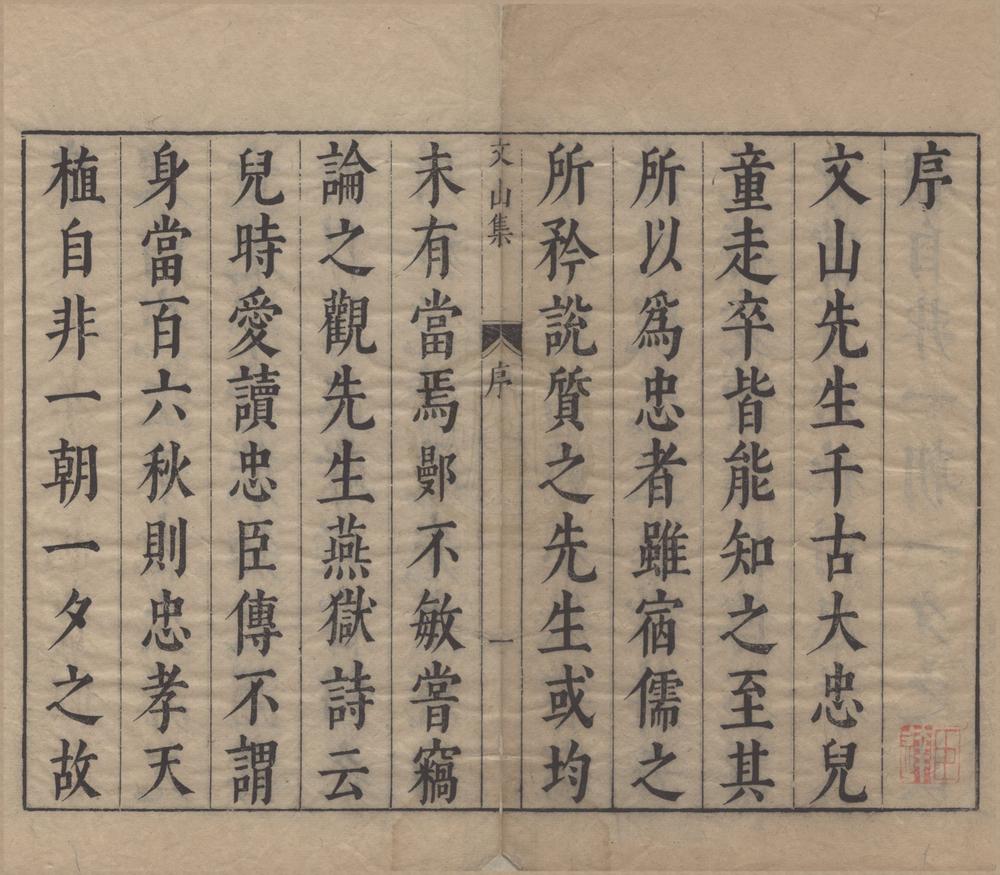 序
文山先生千古大忠兒
童走卒皆能知之至其
所以爲忠者雖宿儒之
所矜説質之先生或均
文山集 序 一
未有當焉鄤不敏嘗竊
論之觀先生燕獄詩云
兒時愛讀忠臣傳不謂
身當百六秋則忠孝天
植自非一朝一夕之故